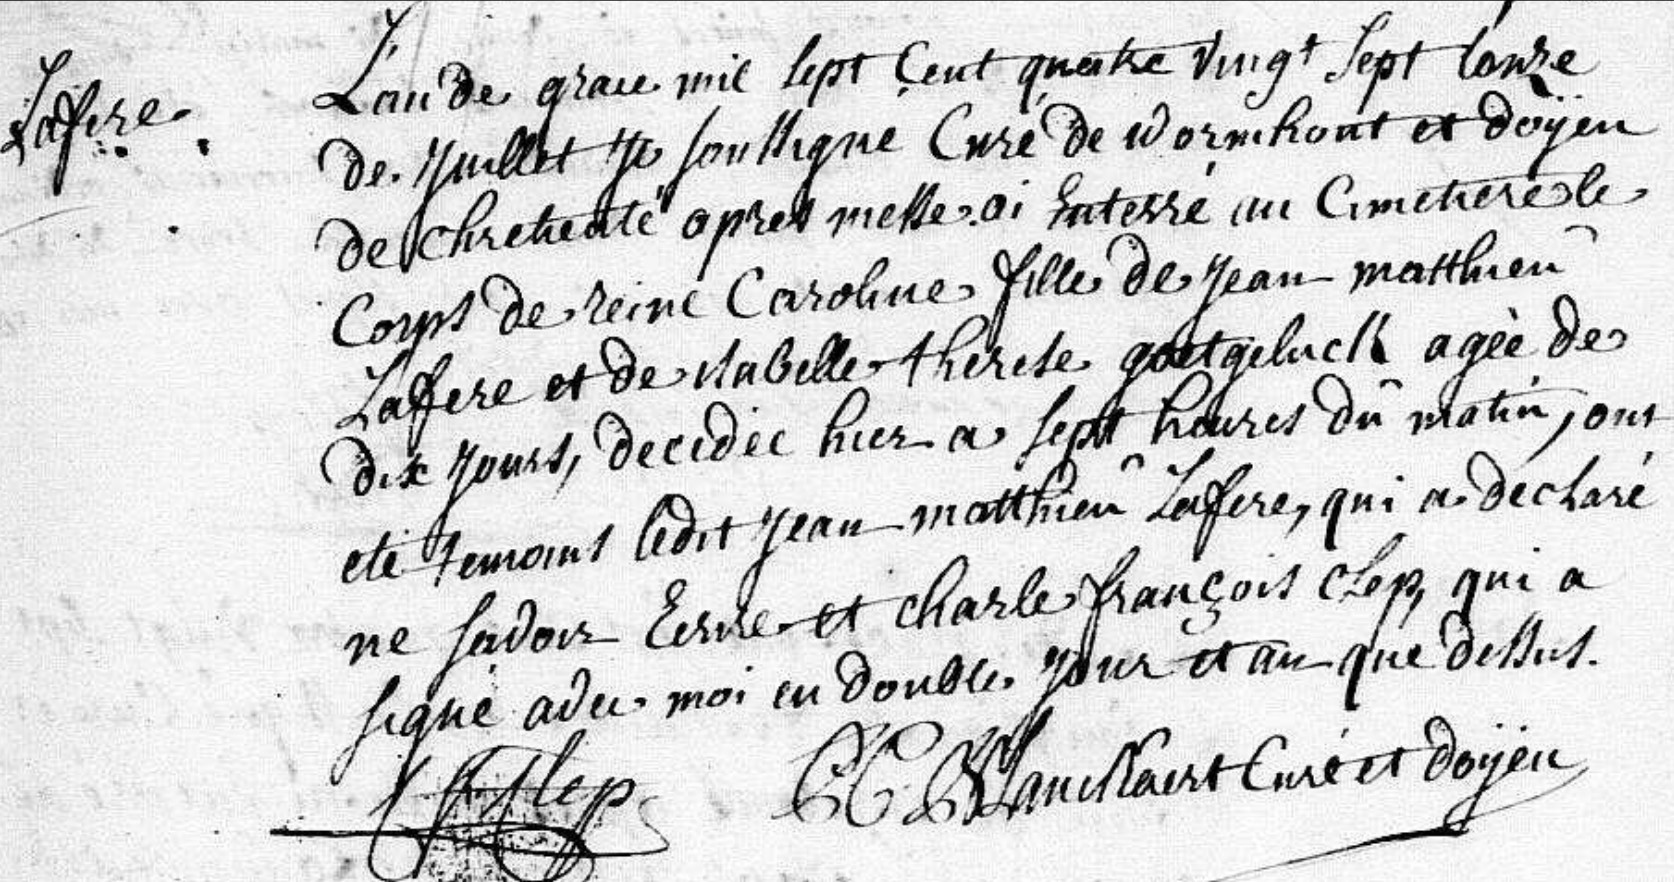 Lafere.
L'an de grace mil sept Cent quatre vingt sept l'onze
de juillet je soussigné Curé de wormhout et doÿen
de chretienté apres messe ai Enterré au Cimetiere le
Corps de reine Caroline fille de jean matthieu
Lafere et de isabelle therese goetgeluck agèe de
dix jours, decidèe hier a sept heures du matin, ont
eté temoins ledit jean matthieu Lafere, qui a declaré
ne savoir Ecrire et charle françois Clep, qui a
signé avec moi en double jour et an que dessus.
Clep
Blanckaert Curé et doÿen